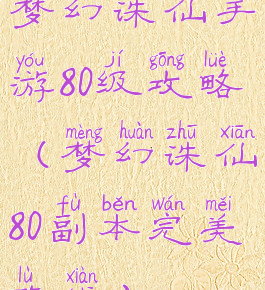 梦幻诛仙手
yóu jí gōng lüè
游80级攻略
mèng huàn zhū xiān
（梦幻诛仙
fù běn wán měi
80副本完美
lù xiàn